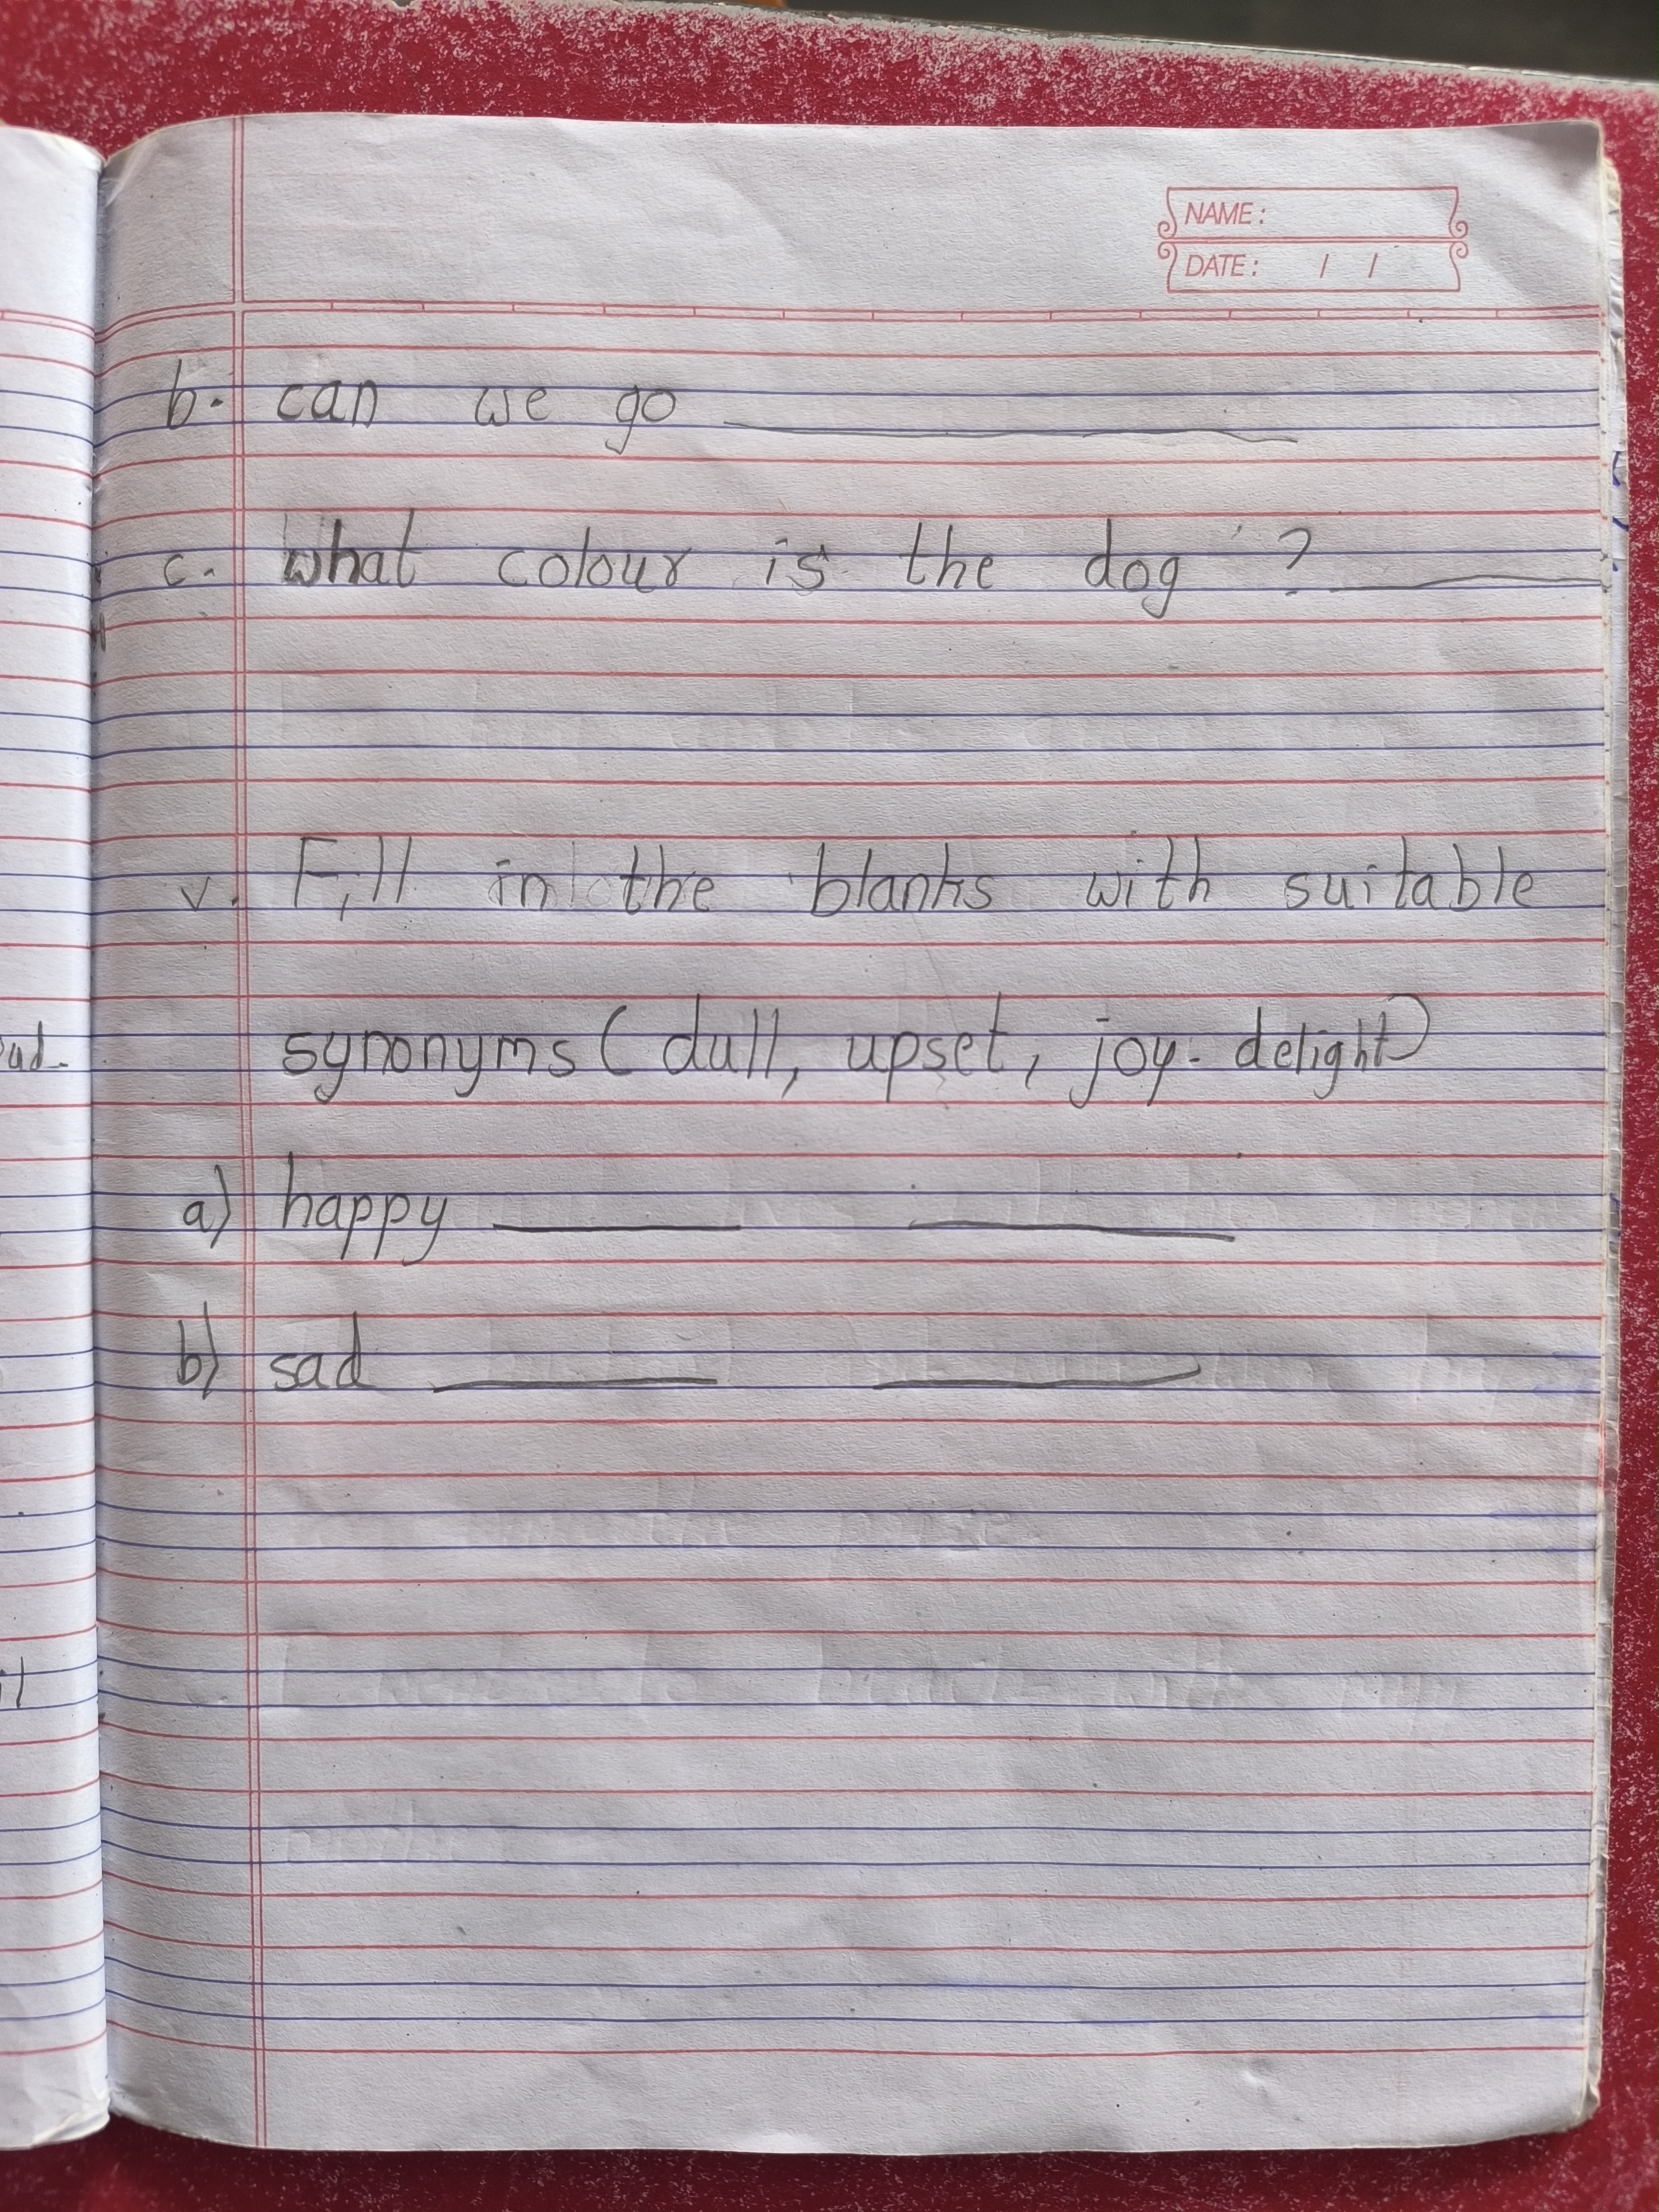 NAME:
DATE: / /
b. can we go ____________
c. what colour is the dog ? ______
v. Fill in the blanks with suitable
synonyms ( dull, upset, joy. delight)
a) happy ______ ______
b) sad ______ ______